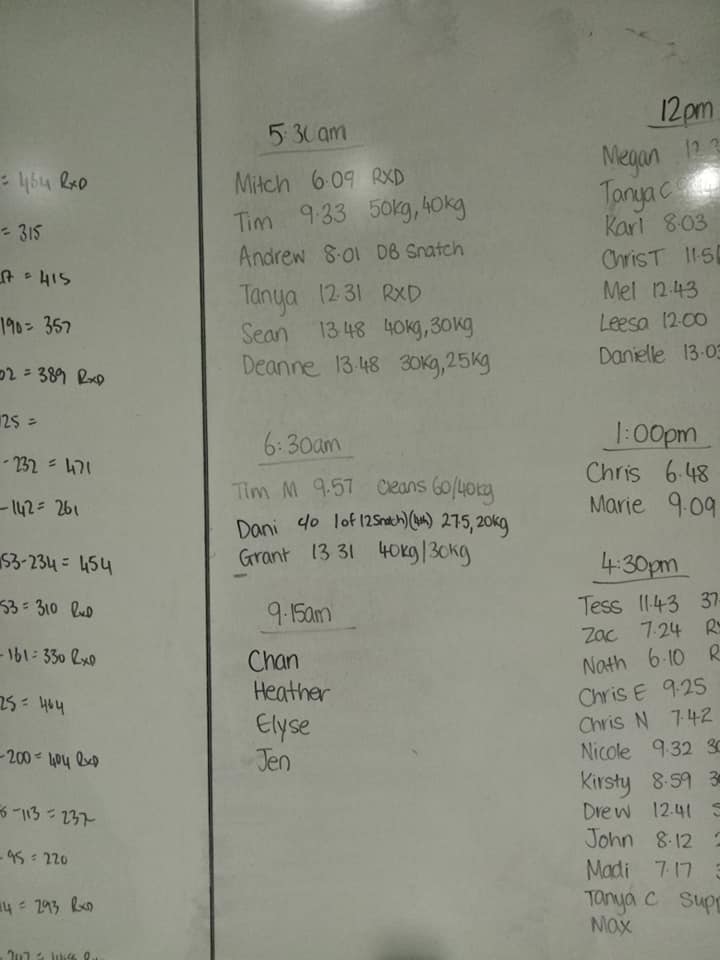 = 464 RxD
= 315
= 415
190 = 357
02 = 389 RxD
25 =
- 232 = 471
- 142 = 261
53 - 234 = 454
53 = 310 RxD
- 161 = 330 RxD
25 = 464
- 200 = 404 RxD
- 113 = 237
- 95 = 220
14 = 293 RxD
5:30am
Mitch 6.09 RXD
Tim 9.33 50kg, 40kg
Andrew 8.01 DB Snatch
Tanya 12.31 RXD
Sean 13.48 40kg, 30kg
Deanne 13.48 30kg, 25kg
6:30am
Tim M 9.57 Cleans 60/40kg
Dani c/o 1 of 12 Snatch) (4th) 27.5, 20kg
Grant 13.31 40kg/30kg
9.15am
Chan
Heather
Elyse
Jen
12pm
Megan
Tanya C
Karl 8.03
Chris T 11.5
Mel 12.43
Leesa 12.00
Danielle 13.03
1:00pm
Chris 6.48
Marie 9.09
4:30pm
Tess 11.43 37
Zac 7.24 R
Nath 6.10 R
Chris E 9.25
Chris N 7.42
Nicole 9.32 30
Kirsty 8.59 30
Drew 12.41
John 8.12
Madi 7.17
Tanya C Supp
Max